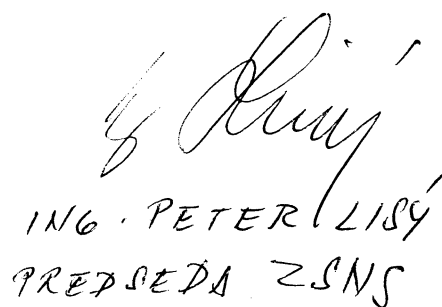 ING. PETER LISÝ
PREDSEDA ZSNS